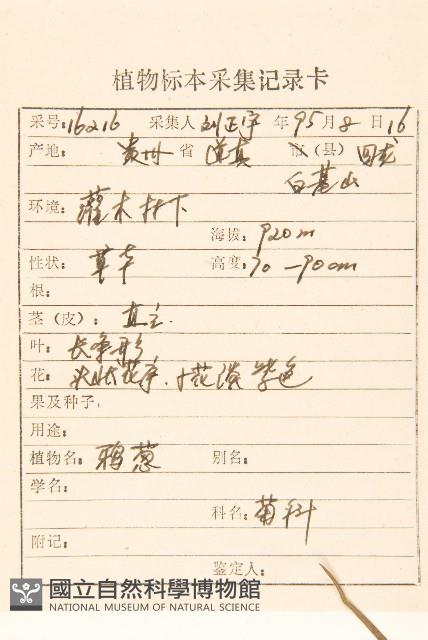 植物标本采集记录卡
采号:16216 采集人 刘正宇 年95月8日16
产地: 贵州省 道真 市(县)
山
环境: 灌木林下
海拔: 920m
性状: 草本 高度: 70-90cm
根:
茎(皮): 直立.
叶: 长条形
花: 头状花序. 小花淡紫色
果及种子:
用途:
植物名: 鸦葱 别名:
学名:
科名: 菊科
附记:
鉴定人:
國立自然科學博物館
NATIONAL MUSEUM OF NATURAL SCIENCE